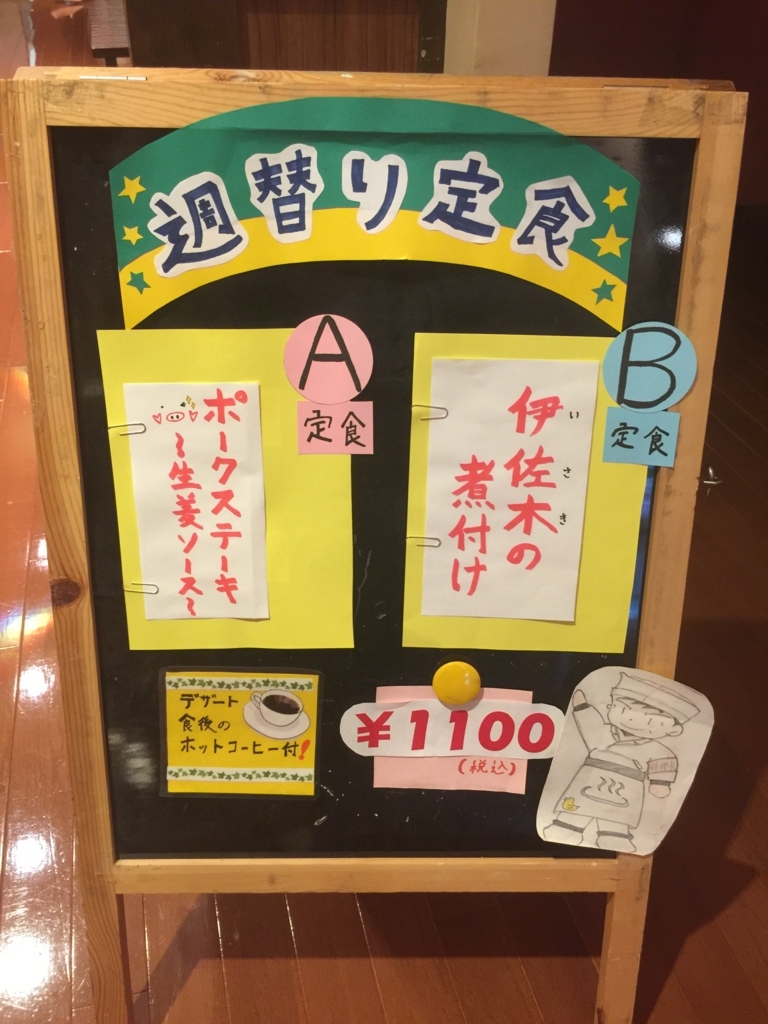 週替り定食
A
定食
ポークステーキ
～生姜ソース～
B
定食
伊佐木の
いさき
煮付け
デザート
食後の
ホットコーヒー付!
¥1100
(税込)